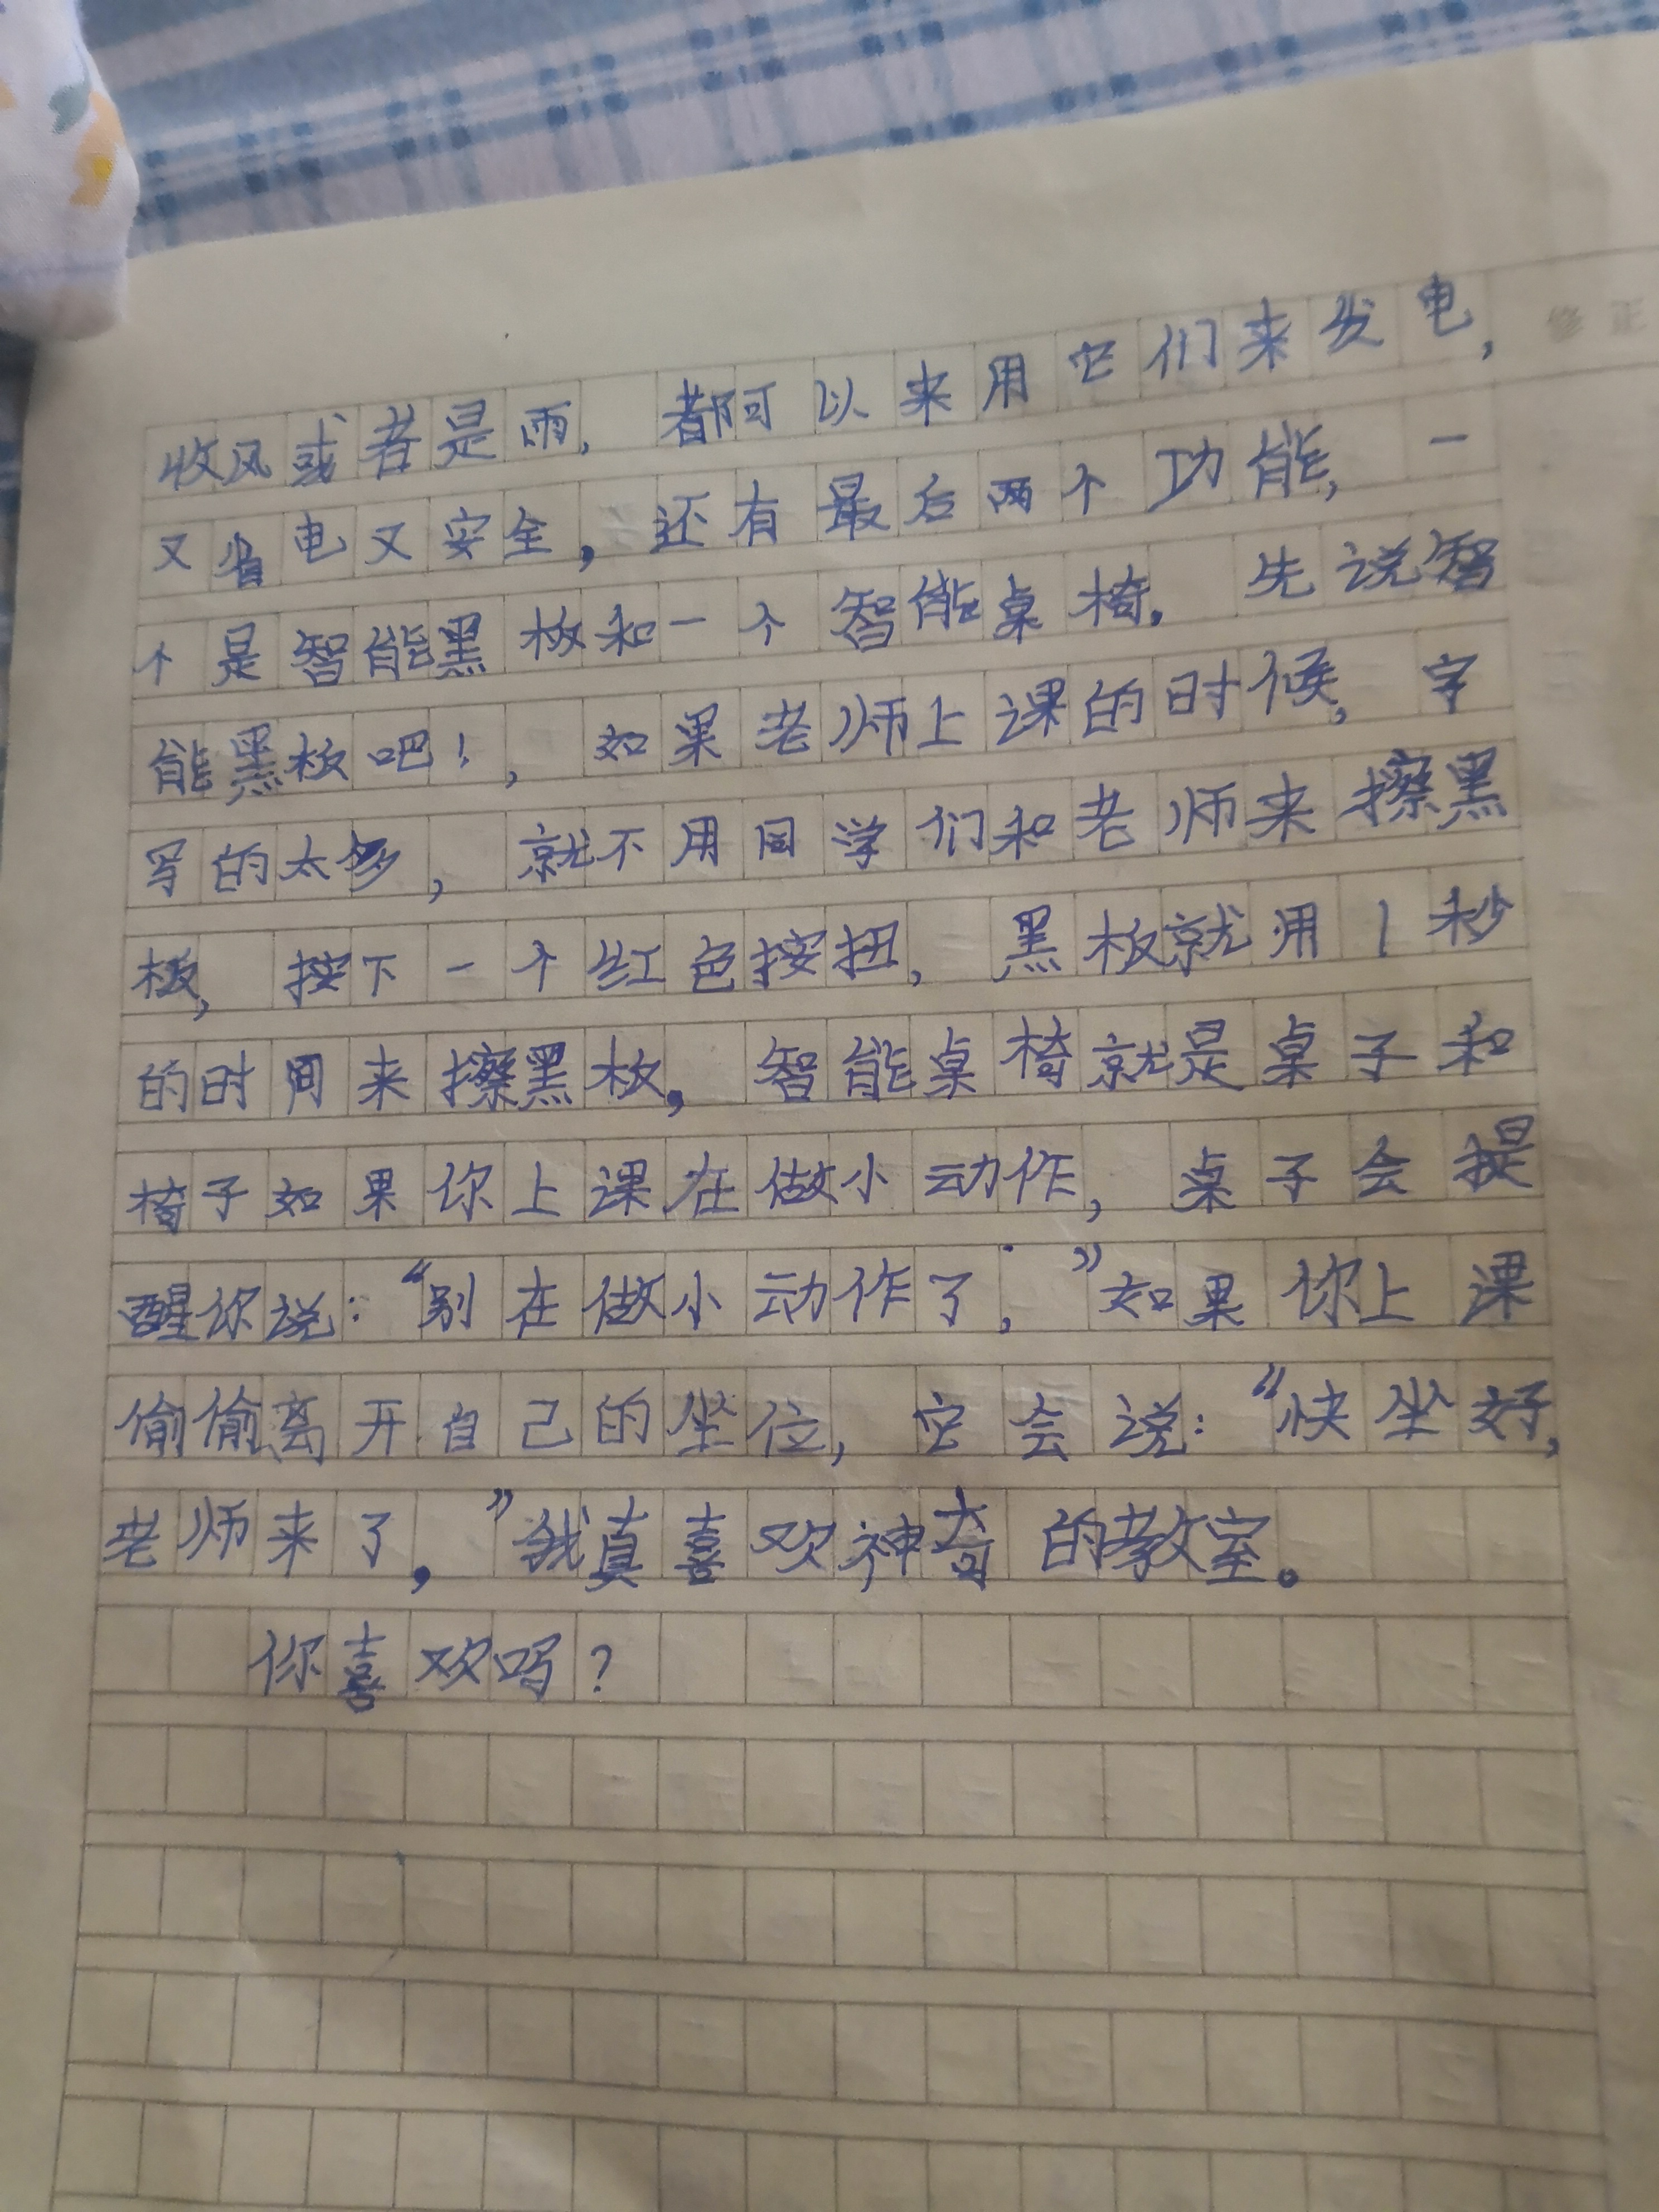 收风或者是雨，都可以来用它们来发电，
又省电又安全，还有最后两个功能，一
个是智能黑板和一个智能桌椅。先说智
能黑板吧！，如果老师上课的时候，字
写的太多，就不用同学们和老师来擦黑
板，按下一个红色按扭，黑板就用1秒
的时间来擦黑板。智能桌椅就是桌子和
椅子如果你上课在做小动作，桌子会提
醒你说：“别在做小动作了；”如果你上课
偷偷离开自己的坐位，它会说：“快坐好，
老师来了，”我真喜欢神奇的教室。
你喜欢吗？
修正